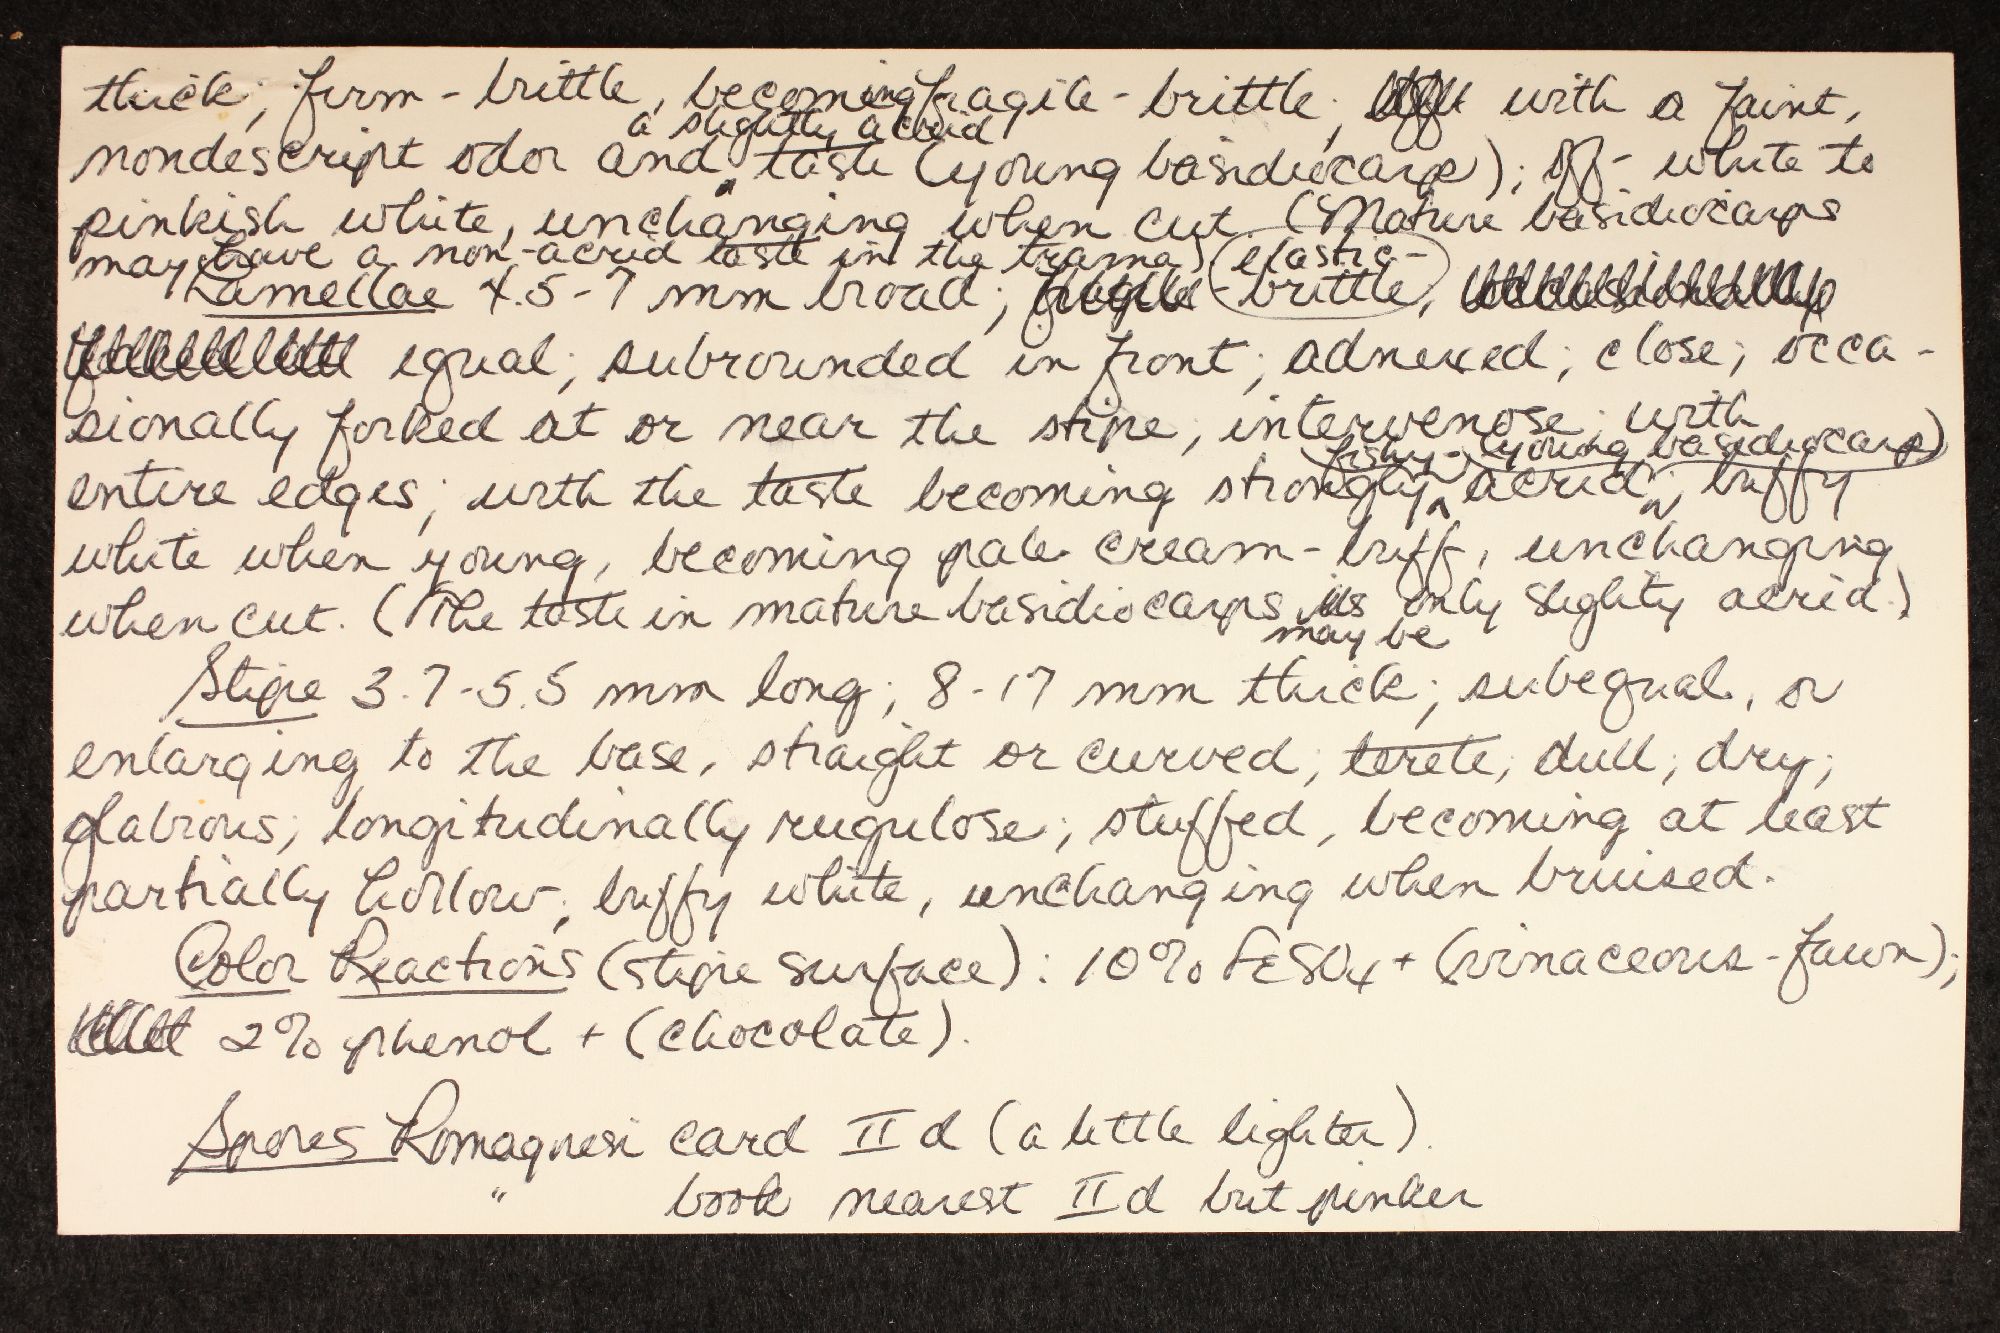 thick; firm-brittle, becoming fragile-brittle; with a faint,
a slightly acrid
nondescript odor and taste (young basidiocarp); off-white to
pinkish white, unchanging when cut. (Mature basidiocarps
may have a non-acrid taste in the trama)
elastic-
Lamellae 4.5-7 mm broad; fragile-brittle,
equal; subrounded in front; adnexed; close; occa-
sionally forked at or near the stipe, intervenose; with
fishy- (young basidiocarp)
entire edges; with the taste becoming strongly acrid; buffy
white when young, becoming pale cream-buff, unchanging
when cut. (The taste in mature basidiocarps is only slighty acrid.)
may be
Stipe 3.7-5.5 mm long; 8-17 mm thick; subequal, or
enlarging to the base, straight or curved; terete; dull; dry;
glabrous; longitudinally rugulose; stuffed, becoming at least
partially hollow; buffy white, unchanging when bruised.
Color Reactions (stipe surface): 10% FeSO4 + (vinaceous-fawn);
2% phenol + (chocolate).
Spores Romagnesi card II d (a little lighter).
" book nearest II d but pinker